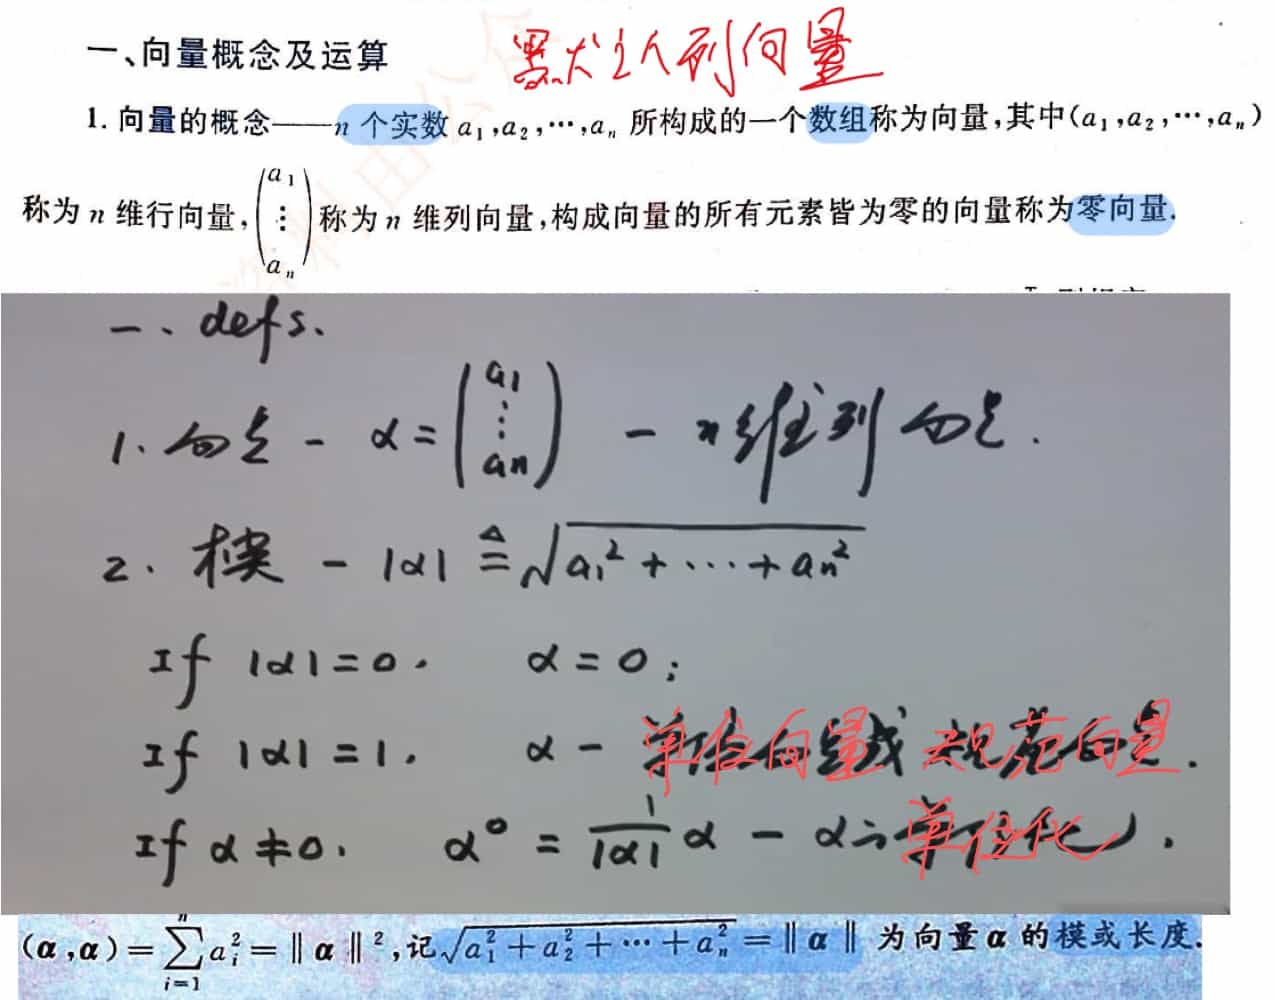 一、向量概念及运算 默认列向量
1. 向量的概念——n 个实数 a₁,a₂,⋯,aₙ 所构成的一个数组称为向量,其中(a₁,a₂,⋯,aₙ)
称为 n 维行向量,(a₁ ⋮ aₙ)称为 n 维列向量,构成向量的所有元素皆为零的向量称为零向量.
一、defs.
1. 向量 - α = (a₁ ⋮ aₙ) - n维列向量.
2. 模 - |α| ≜ √(a₁² + ⋯ + aₙ²)
If |α| = 0. α = 0;
If |α| = 1. α - 单位向量或规范向量.
If α ≠ 0. α⁰ = 1/|α| α - α 单位化.
(α,α) = ∑ⁿᵢ₌₁ aᵢ² = ‖α‖², 记 √(a₁² + a₂² + ⋯ + aₙ²) = ‖α‖ 为向量 α 的模或长度.